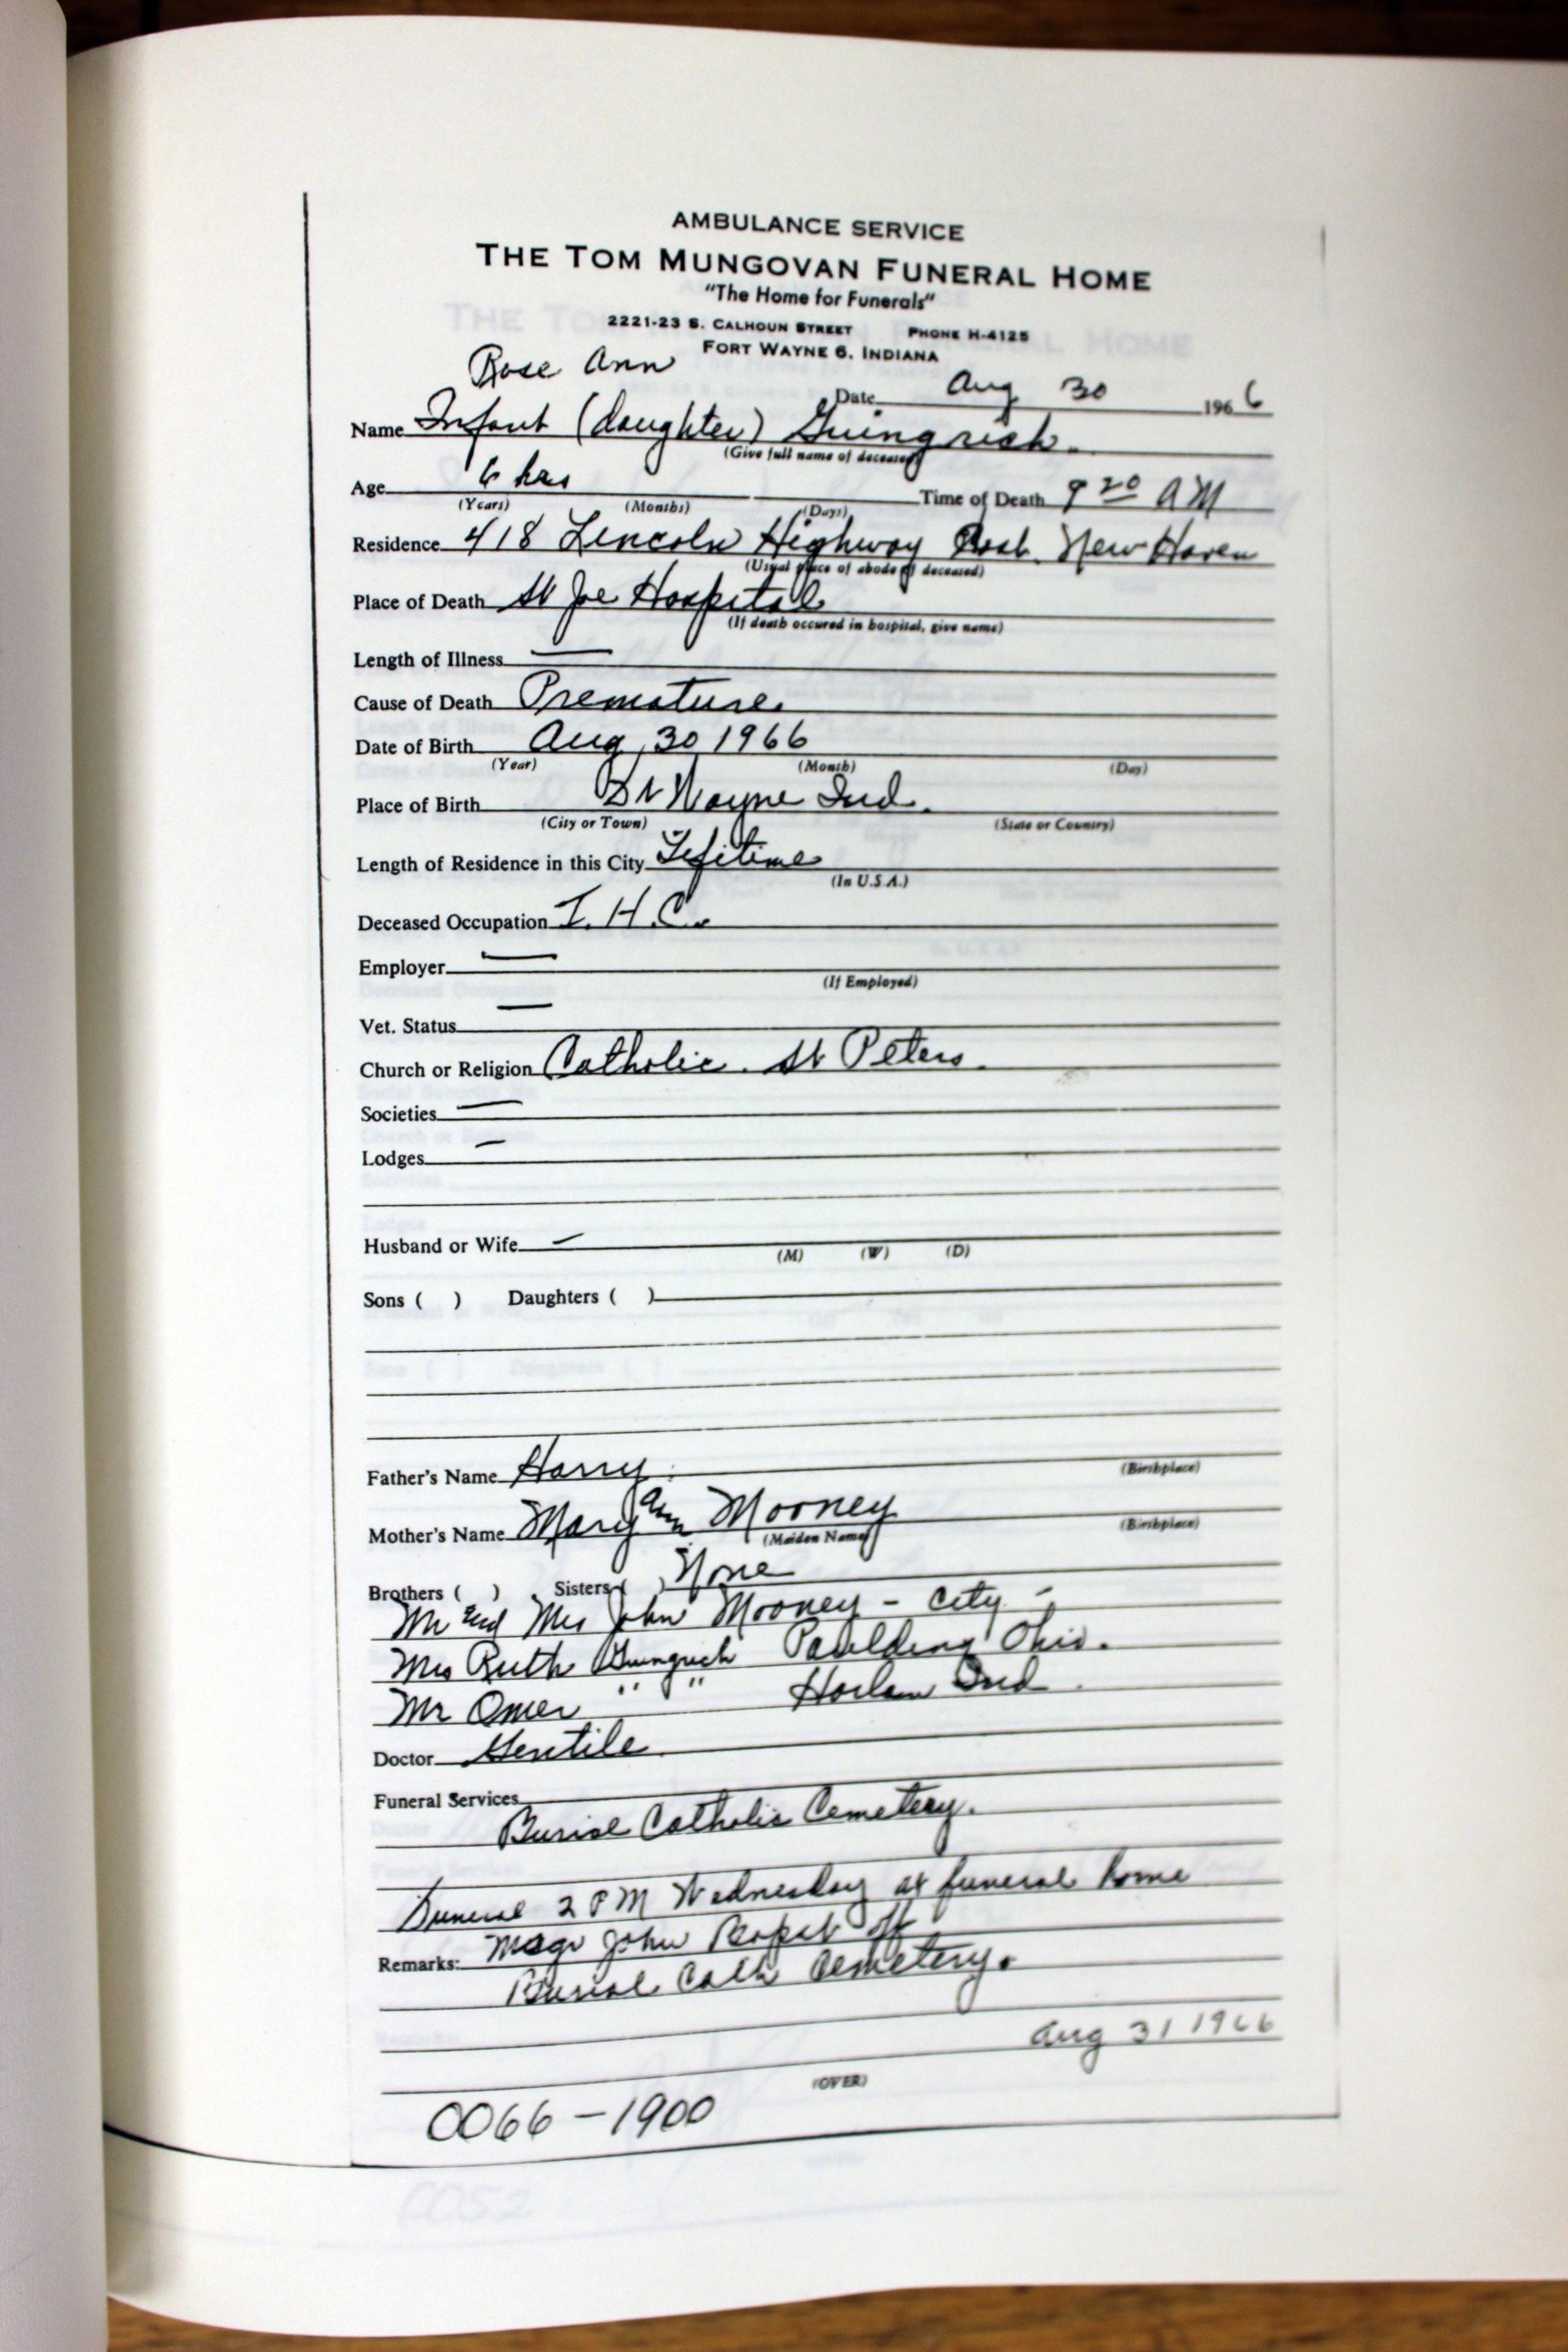 AMBULANCE SERVICE
THE TOM MUNGOVAN FUNERAL HOME
"The Home for Funerals"
2221-23 S. CALHOUN STREET PHONE H-4125
FORT WAYNE 6, INDIANA
Rose Ann
Date Aug 30 1966
Name Infant (daughter) Guingrich
(Give full name of deceased)
Age 6 hrs Time of Death 9 20 AM
(Years) (Months) (Days)
Residence 418 Lincoln Highway New Haven
(Usual place of abode of deceased)
Place of Death St Joe Hospital
(If death occured in hospital, give name)
Length of Illness —
Cause of Death Premature
Date of Birth Aug 30 1966
(Year) (Month) (Day)
Place of Birth Ft Wayne Ind.
(City or Town) (State or Country)
Length of Residence in this City Lifetime
(In U.S.A.)
Deceased Occupation I.H.C.
Employer —
(If Employed)
Vet. Status —
Church or Religion Catholic. St Peters.
Societies —
Lodges —
Husband or Wife —
(M) (W) (D)
Sons ( ) Daughters ( )
Father's Name Harry
(Birthplace)
Mother's Name Mary Ann Mooney
(Maiden Name) (Birthplace)
Brothers ( ) Sisters ( ) None
Mr and Mrs John Mooney - City -
Mrs Ruth Guingrich Paulding Ohio.
Mr Omer " " Harlan Ind.
Doctor Gentile
Funeral Services
Burial Catholic Cemetery.
Funeral 2 PM Wednesday at funeral home
Remarks: Msgr John off
Burial Cath Cemetery.
Aug 31 1966
(OVER)
0066-1900
0052